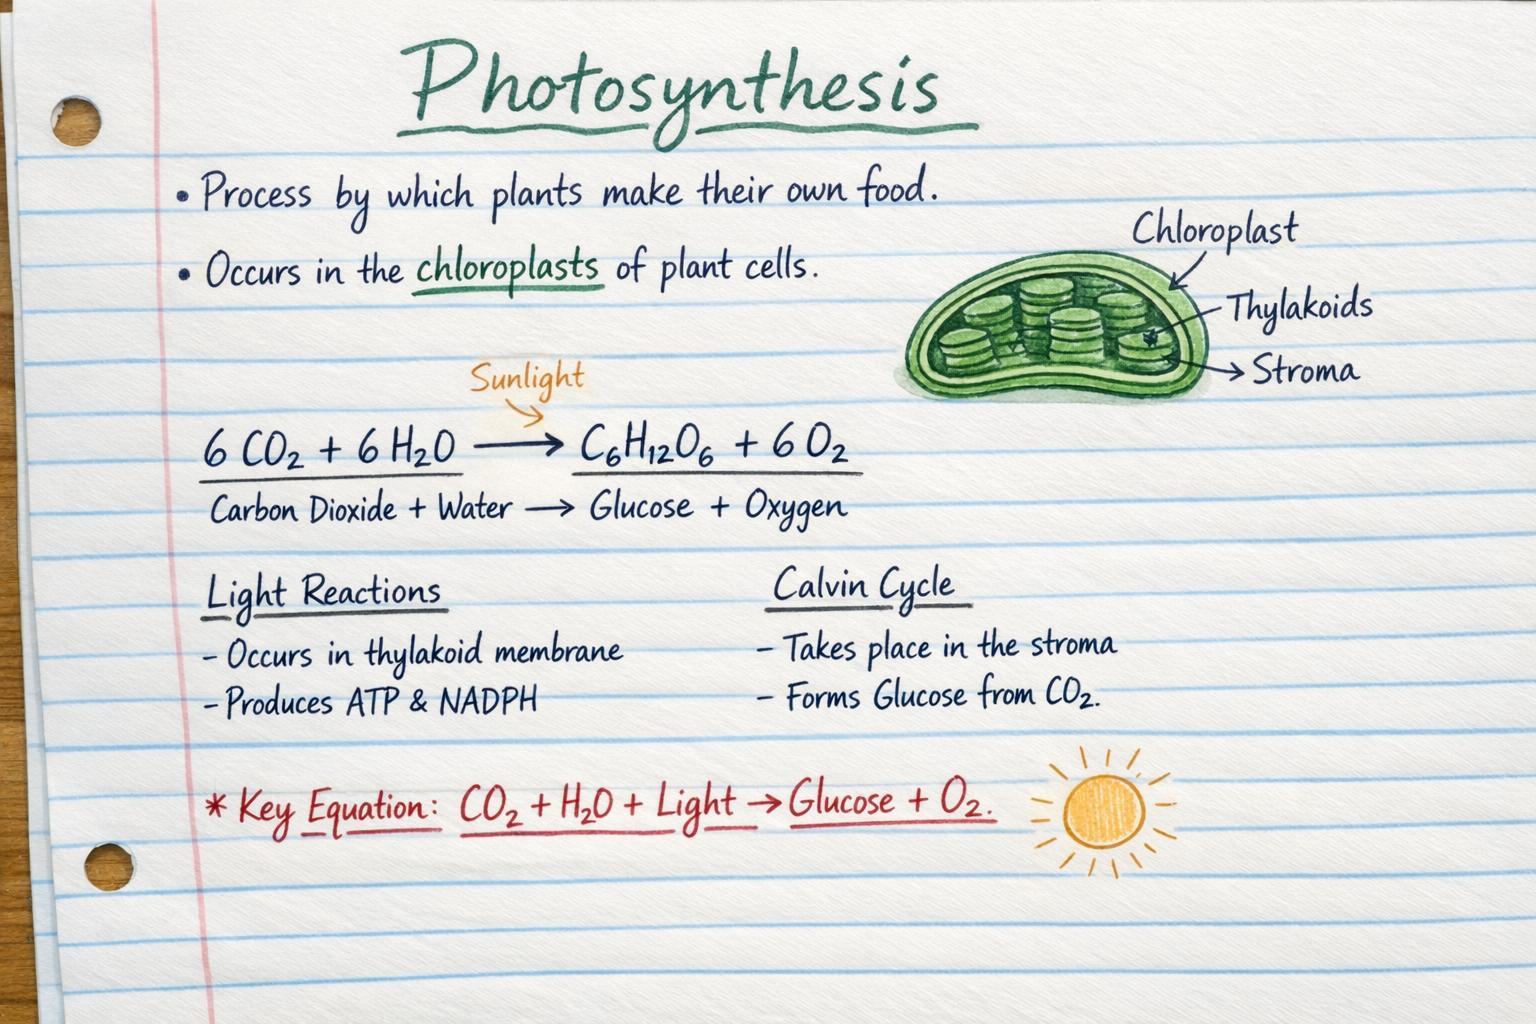 Photosynthesis
• Process by which plants make their own food.
• Occurs in the chloroplasts of plant cells.
Chloroplast
Thylakoids
Stroma
Sunlight
6 CO₂ + 6 H₂O → C₆H₁₂O₆ + 6 O₂
Carbon Dioxide + Water → Glucose + Oxygen
Light Reactions
- Occurs in thylakoid membrane
- Produces ATP & NADPH
Calvin Cycle
- Takes place in the stroma
- Forms Glucose from CO₂.
* Key Equation: CO₂ + H₂O + Light → Glucose + O₂.